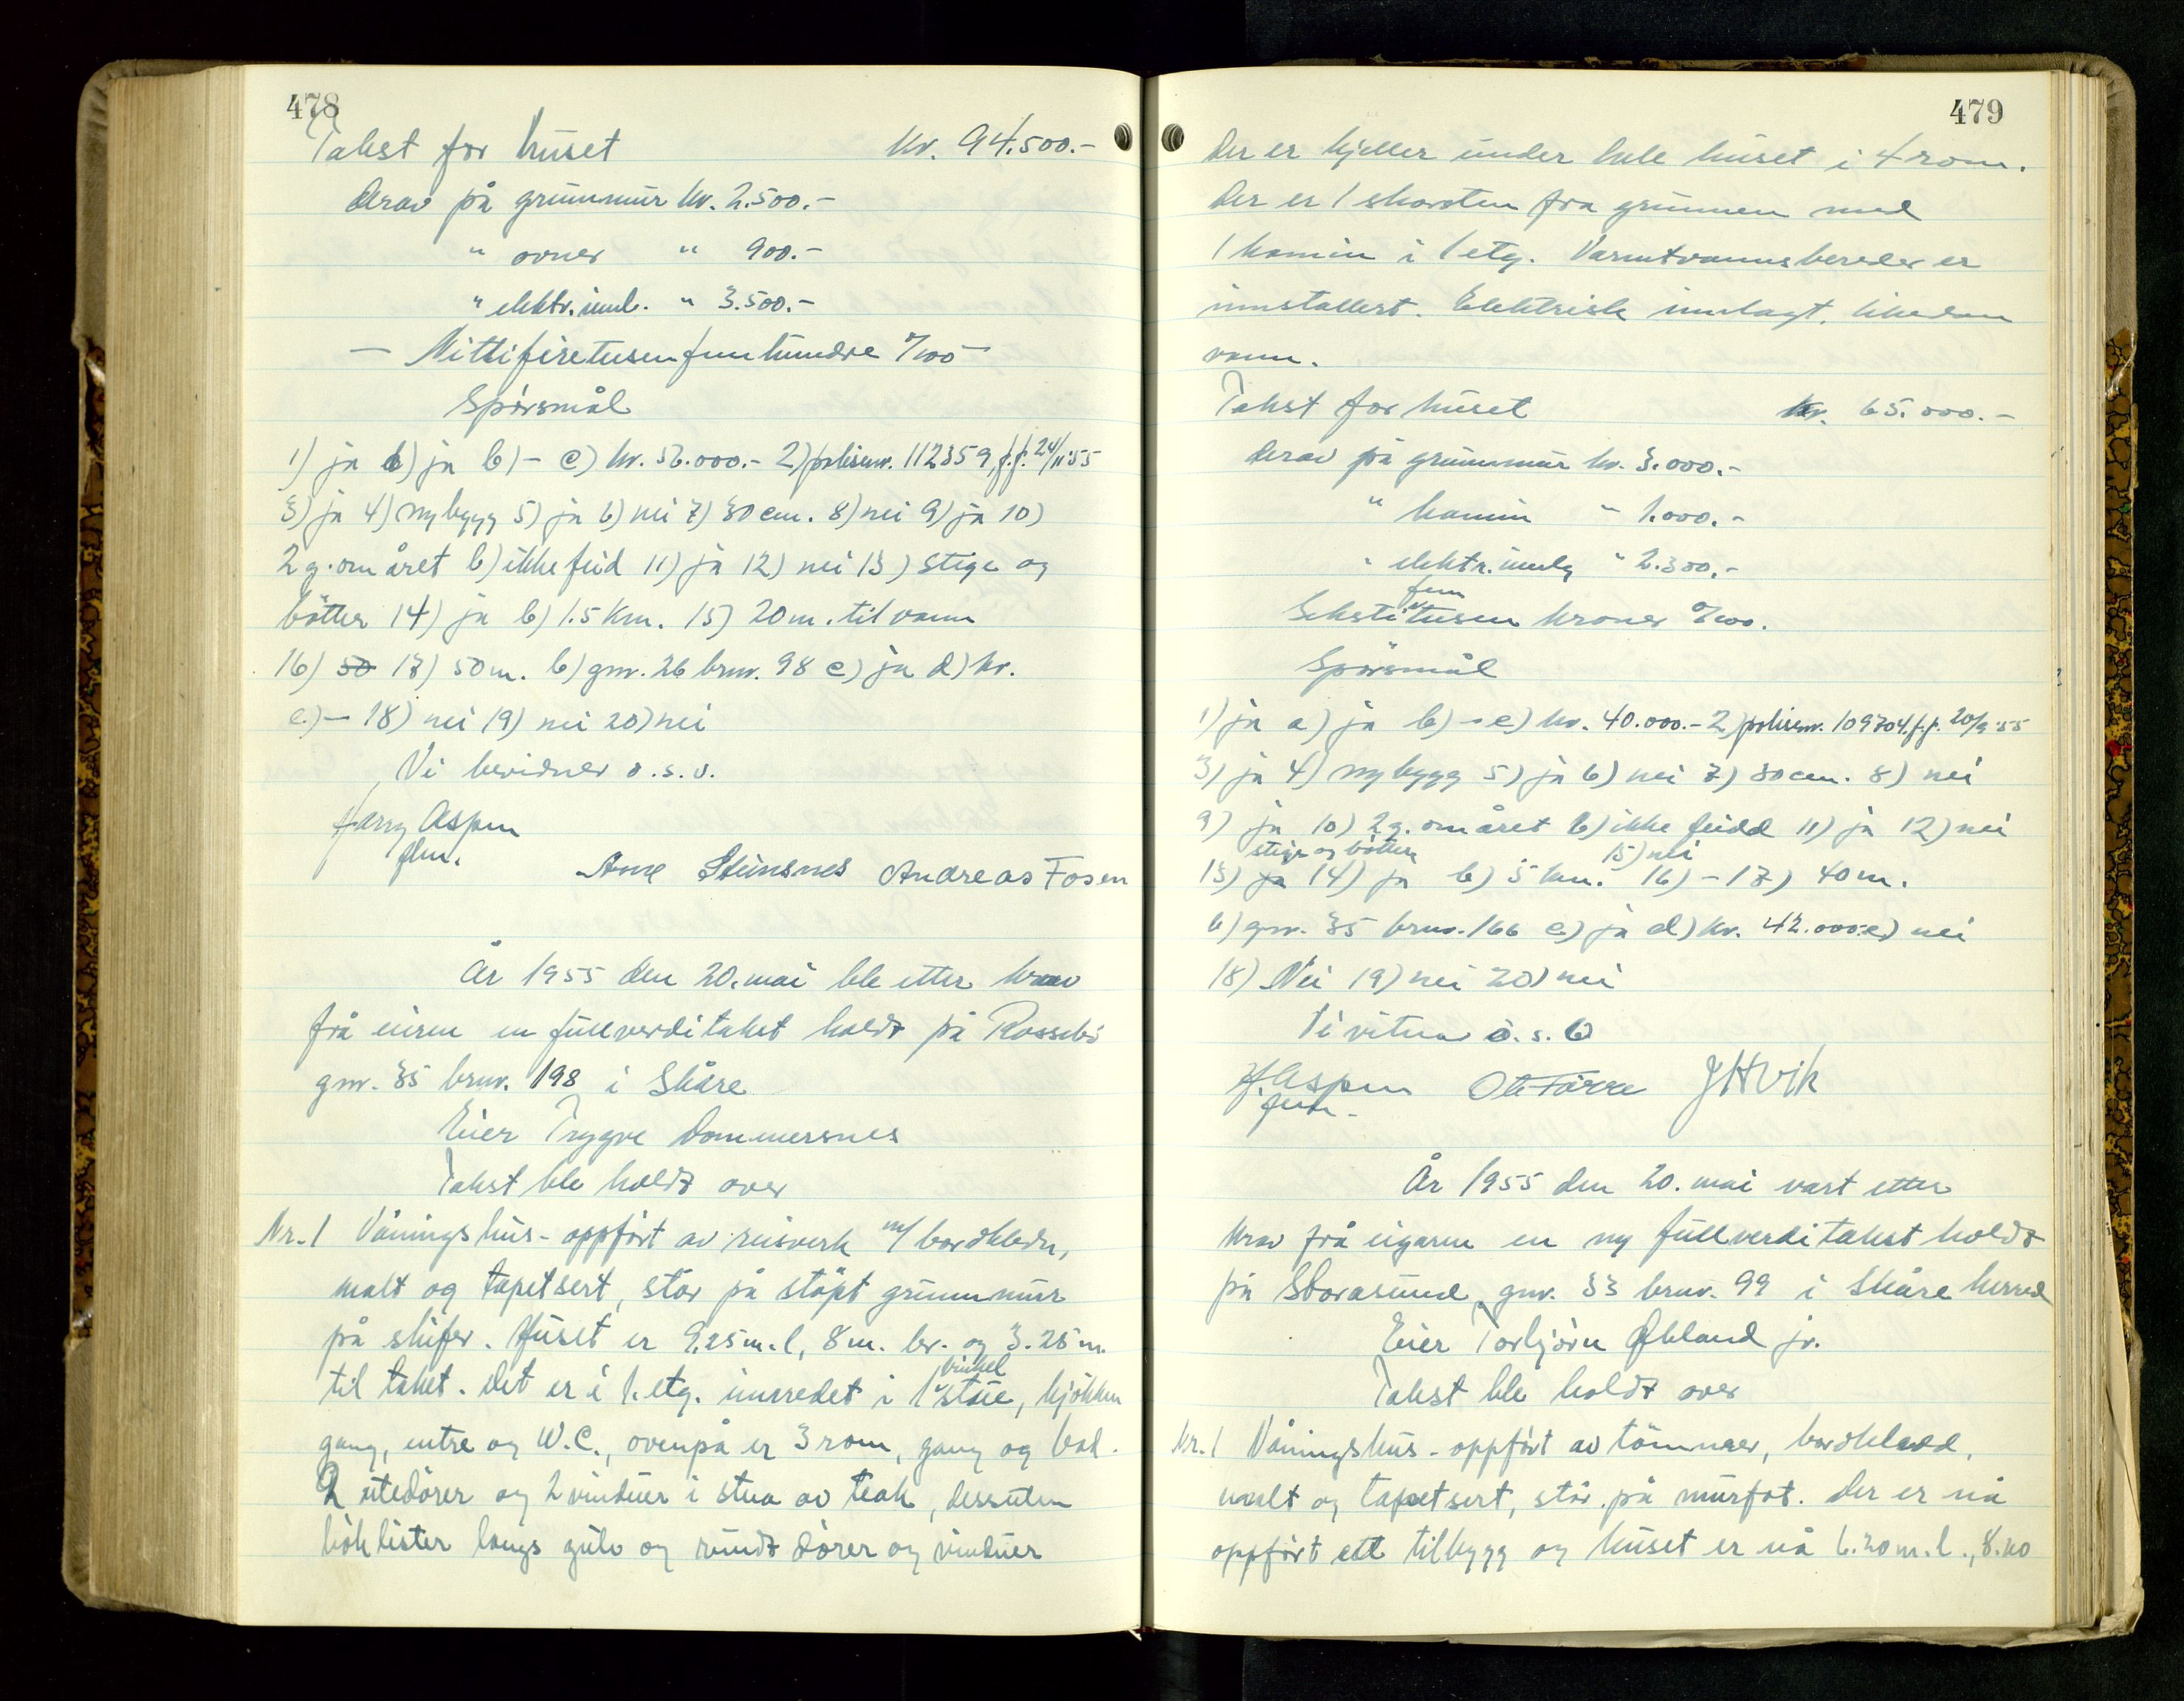 478
Takst for huset kr. 94.500.-
derav på grunnmur kr. 2.500.-
" ovner " 900.-
" elektr. innl. " 3.500.-
— Nittifiretusenfemhundre 0/100 —
Spörsmål
1) ja a) ja b) - c) kr. 56.000.- 2) polisenr. 112359 f.f. 24/11-55
3) ja 4) nybygg 5) ja 6) nei 7) 30 cm. 8) nei 9) ja 10)
2 g. om året b) ikke feid 11) ja 12) nei 13) stige og
bötter 14) ja b) 1.5 km. 15) 20 m. til vann
16) 50 17) 50 m. b) gnr. 26 bnr. 98 c) ja d) kr.
e.) — 18) nei 19) nei 20) nei
Vi bevidner o.s.v.
Harry Aspen
fhm.
Arne Steinsnes Andreas Fosen
År 1955 den 20. mai ble etter krav
frå eieren en fullverditakst holdt på Rossebö
gnr. 35 bnr. 198 i Skåre
Eier Trygve Dommersnes
Takst ble holdt over
Nr. 1 Våningshus - oppfört av reisverk m/ bordkledn,
malt og tapetsert, står på stöpt grunnmur
på skifer. Huset er 9,25 m. l, 8 m. br. og 3.25 m.
til taket. Det er i 1. etg. innredet i 1 vinkel
stue, kjökken
gang, entre og W.C., ovenpå er 3 rom, gang og bad.
2 utedörer og 2 vinduer i stua av teak, dessuten
böklister langs gulv og rundt dörer og vinduer
479
Der er kjeller under hele huset i 4 rom.
Der er 1 skorsten fra grunnen med
1 kamin i 1 etg. Varmtvannsbereder er
innstallert. Elektrisk innlagt, likedan
vann.
Takst for huset kr. 65.000.-
derav på grunnmur kr. 3.000.-
" kamin " 1.000.-
" elektr. innlg " 2.300.-
fem
Sekstitusen kroner 0/100.
Spörsmål
1) ja a) ja b) - c) kr. 40.000.- 2) polisenr. 109304 f.f. 20/9-55
3) ja 4) nybygg 5) ja 6) nei 7) 30 cm. 8) nei
9) ja 10) 2 g. om året b) ikke feidd 11) ja 12) nei
stige og bötter 15) nei
13) ja 14) ja b) 5 km. 16) - 17) 40 m.
b) gnr. 35 bnr. 166 c) ja d) kr. 42.000 e) nei
18) Nei 19) nei 20) nei
Vi vitnar o.s.v
H. Aspen
fhm.
Ole Förre J H Vik
År 1955 den 20. mai vart etter
krav frå eigaren en ny fullverditakst holdt
på Storasund, gnr. 33 bnr. 99 i Skåre herred
Eier Torbjörn Økland jr.
Takst ble holdt over
Nr. 1 Våningshus - oppfört av tömmer, bordkledd,
malt og tapetsert, står på murfot. Der er nå
oppfört ett tilbygg og huset er nå 6.20 m. l., 8.20